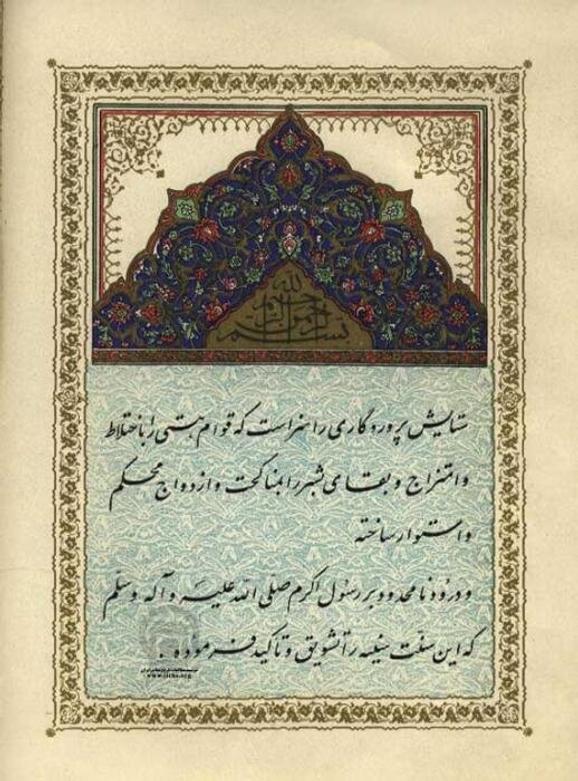 بسم الله الرحمن الرحیم
ستایش پروردگاری را سزاست که قوام هستی را باختلاط
و امتزاج و بقای بشر را بمناکحت و ازدواج محکم
و استوار ساخته
و درود نامحدود بر رسول اکرم صلی الله علیه و آله وسلم
که این سنت سنیه را تشویق و تأکید فرموده .
www.iichs.org